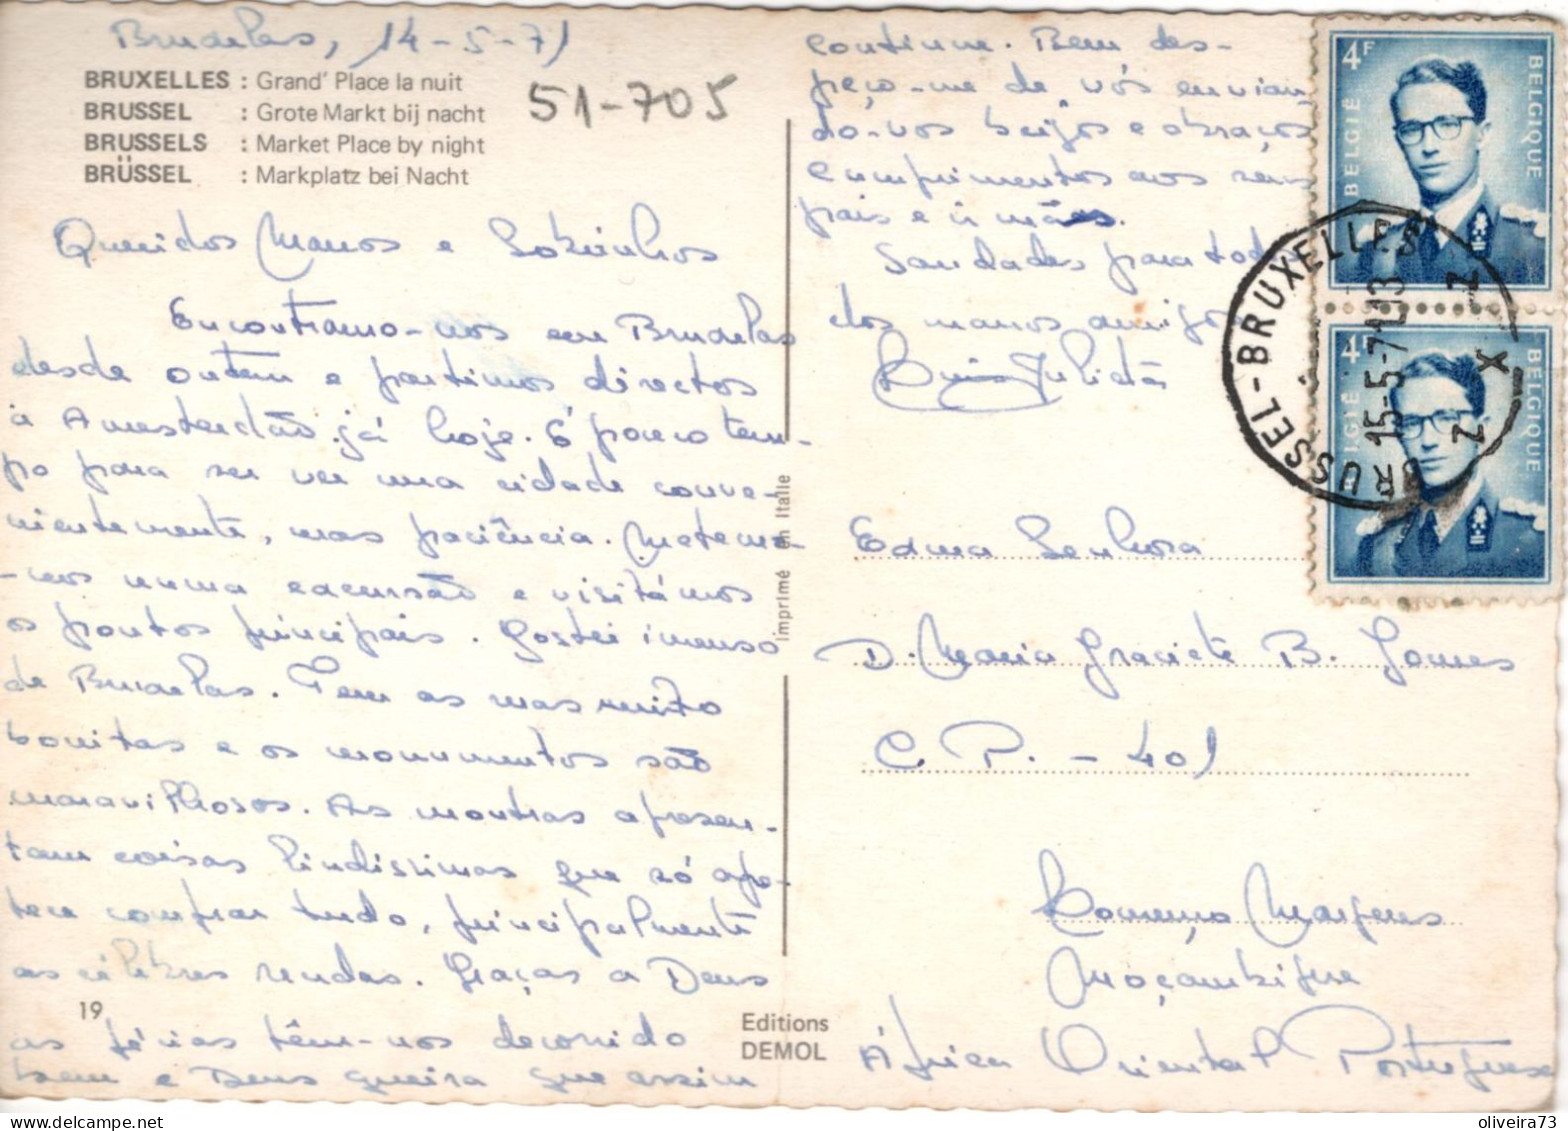 Bruxelas, 14-5-71
BRUXELLES : Grand' Place la nuit
BRUSSEL : Grote Markt bij nacht
BRUSSELS : Market Place by night
BRÜSSEL : Markplatz bei Nacht
51-705
Queridos Manos e Sobrinhos
Encontramo-nos em Bruxelas
desde ontem e partimos directos
a Amesterdão já hoje. É pouco tem-
po para se ver uma cidade conve-
nientemente, mas paciência. Metemo-
-nos numa excursão e visitámos
os pontos principais. Gostei imenso
de Bruxelas. Tem as ruas muito
bonitas e os monumentos são
maravilhosos. As montras apresen-
tam coisas lindíssimas que só ape-
tece comprar tudo, principalmente
as célebres rendas. Graças a Deus
as férias têm-nos decorrido
bem e Deus queira que assim
19
continue. Bem des-
peço-me de vós envian-
do-vos beijos e abraços
cumprimentos aos seus
pais e irmãos.
Saudades para todos
dos manos amigos
Julieta
Imprimé en Italie
Editions
DEMOL
4F BELGIË BELGIQUE
4F BELGIË BELGIQUE
BRUSSEL-BRUXELLES
15-5-71
Exma Senhora
D. Maria Graciete B. Gomes
C. P. - 401
Lourenço Marques
Moçambique
África Oriental Portuguesa
oliveira73